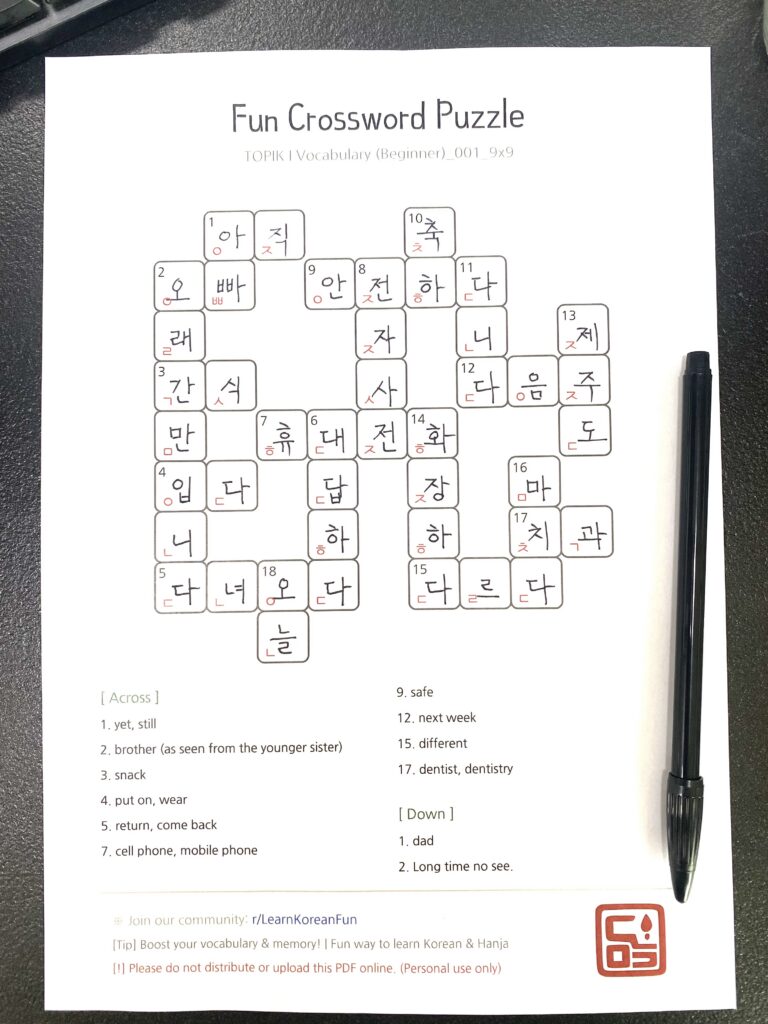 Fun Crossword Puzzle
TOPIK I Vocabulary (Beginner)_001_9x9
1 아 ㅇ 직 ㅈ 10 축 ㅊ
2 오 ㅇ 빠 ㅃ 9 안 ㅇ 8 전 ㅈ 하 ㅎ 11 다 ㄷ
래 ㄹ 자 ㅈ 니 ㄴ 13 제 ㅈ
3 간 ㄱ 식 ㅅ 사 ㅅ 12 다 ㄷ 음 ㅇ 주 ㅈ
만 ㅁ 7 휴 ㅎ 6 대 ㄷ 전 ㅈ 14 화 ㅎ 도 ㄷ
4 입 ㅇ 다 ㄷ 답 ㄷ 장 ㅈ 16 마 ㅁ
니 ㄴ 하 ㅎ 하 ㅎ 17 치 ㅊ 과 ㄱ
5 다 ㄷ 녀 ㄴ 18 오 ㅇ 다 ㄷ 15 다 ㄷ 르 ㄹ 다 ㄷ
늘 ㄴ
[ Across ]
1. yet, still
2. brother (as seen from the younger sister)
3. snack
4. put on, wear
5. return, come back
7. cell phone, mobile phone
9. safe
12. next week
15. different
17. dentist, dentistry
[ Down ]
1. dad
2. Long time no see.
⊕ Join our community: r/LearnKoreanFun
[Tip] Boost your vocabulary & memory! | Fun way to learn Korean & Hanja
[!] Please do not distribute or upload this PDF online. (Personal use only)